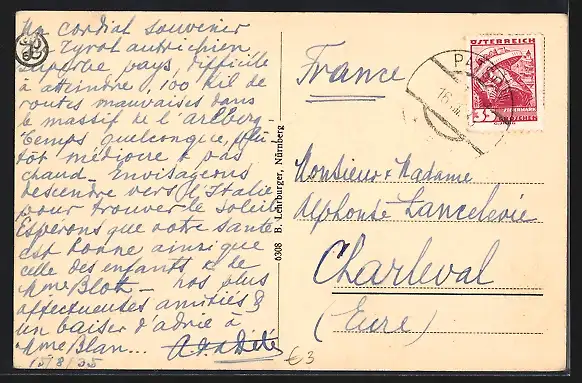 Un cordial souvenir
Tyrol autrichien,
superbe pays, difficile
à atteindre, 100 kil de
routes mauvaises dans
le massif de l'Arlberg-
Temps quelconque, plu-
tôt médiocre & pas
chaud - Envisageons
descendre vers l'Italie
pour trouver le soleil
Espérons que votre santé
est bonne ainsi que
celle des enfants & de
Mme Blok - nos plus
affectueuses amitiés &
un baiser d'adrie à
Mme Blan...
15/8/35
6308 B. Lehrburger, Nürnberg
France
ÖSTERREICH
35
GROSCHEN
16
Monsieur & Madame
Alphonse Lancelevée
Charleval
(Eure)
€3